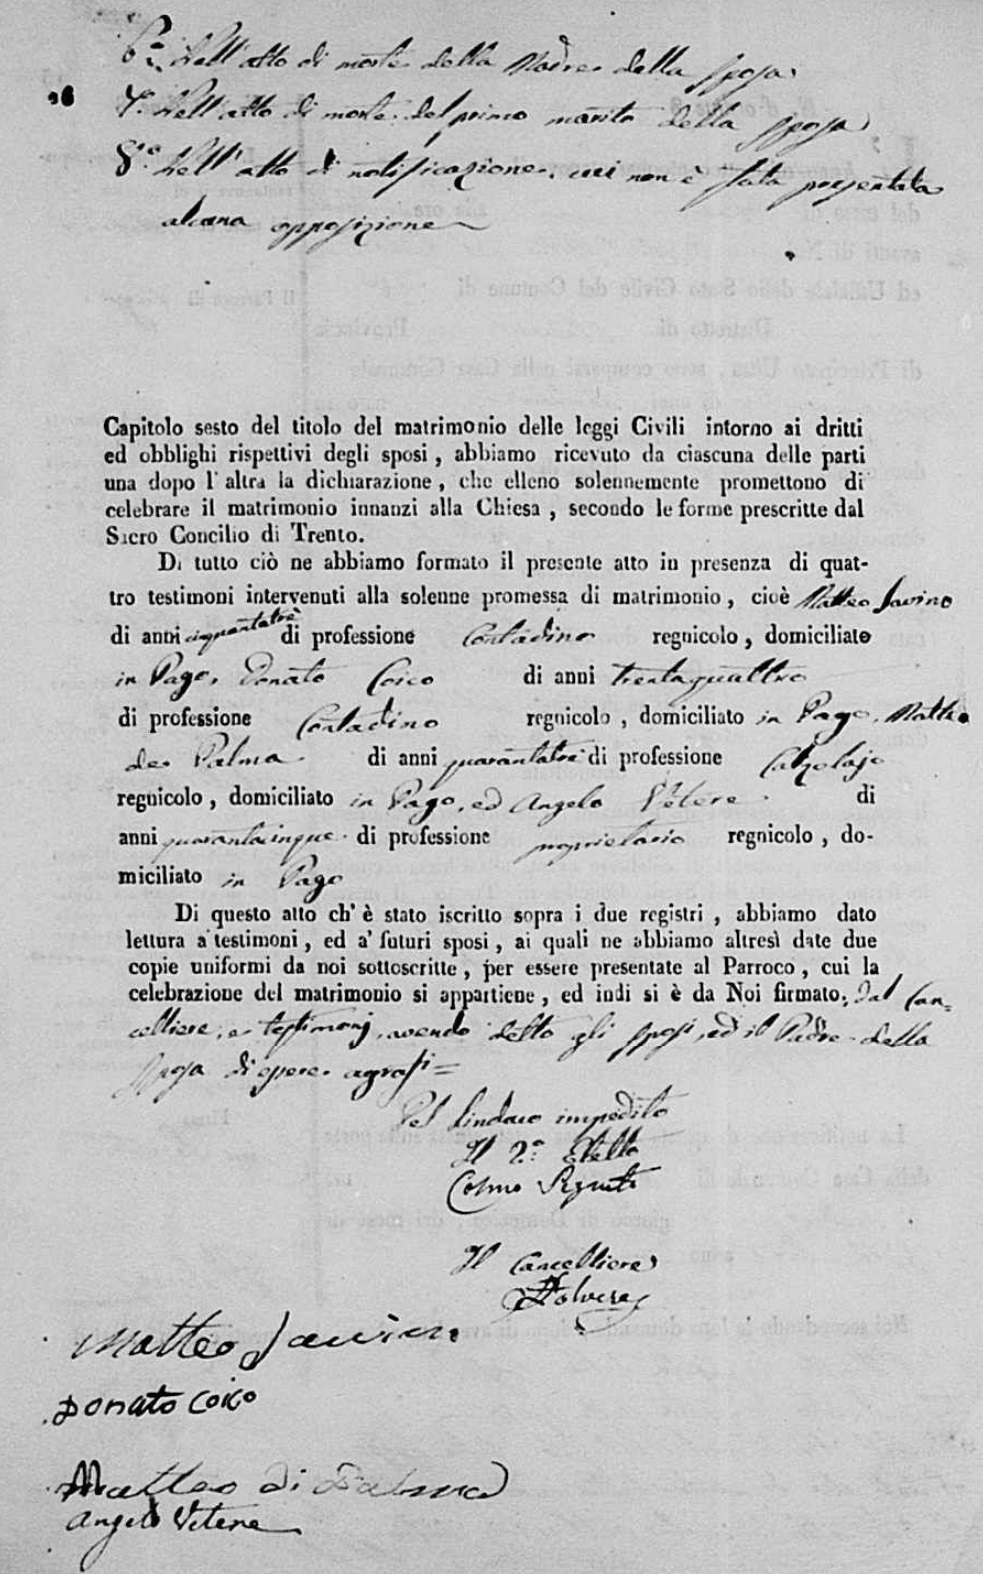 6.° Dell'atto di morte della Madre della sposa
7.° Dell'atto di morte del primo marito della sposa
8.° Dell'atto di notificazione, cui non è stata presentata
alcuna opposizione
Capitolo sesto del titolo del matrimonio delle leggi Civili intorno ai dritti
ed obblighi rispettivi degli sposi, abbiamo ricevuto da ciascuna delle parti
una dopo l'altra la dichiarazione, che elleno solennemente promettono di
celebrare il matrimonio innanzi alla Chiesa, secondo le forme prescritte dal
Sacro Concilio di Trento.
Di tutto ciò ne abbiamo formato il presente atto in presenza di quat-
tro testimoni intervenuti alla solenne promessa di matrimonio, cioè Matteo Savino
di anni cinquantatrè di professione Contadino regnicolo, domiciliato
in Pago, Donato Coico di anni trentaquattro
di professione Contadino regnicolo, domiciliato in Pago, Matteo
de Palma di anni quarantatre di professione Calzolajo
regnicolo, domiciliato in Pago, ed Angelo Vetere di
anni quarantacinque di professione proprietario regnicolo, do-
miciliato in Pago
Di questo atto ch'è stato iscritto sopra i due registri, abbiamo dato
lettura a' testimoni, ed a' futuri sposi, ai quali ne abbiamo altresì date due
copie uniformi da noi sottoscritte, per essere presentate al Parroco, cui la
celebrazione del matrimonio si appartiene, ed indi si è da Noi firmato, dal Can=
celliere, e testimonj, avendo detto gli sposi, ed il Padre della
sposa di essere
Pel Sindaco impedito
Il 2.° Eletto
Cosmo
Il Cancelliere
Matteo Savino
Donato Coico
Matteo di Palma
Angelo Vetere